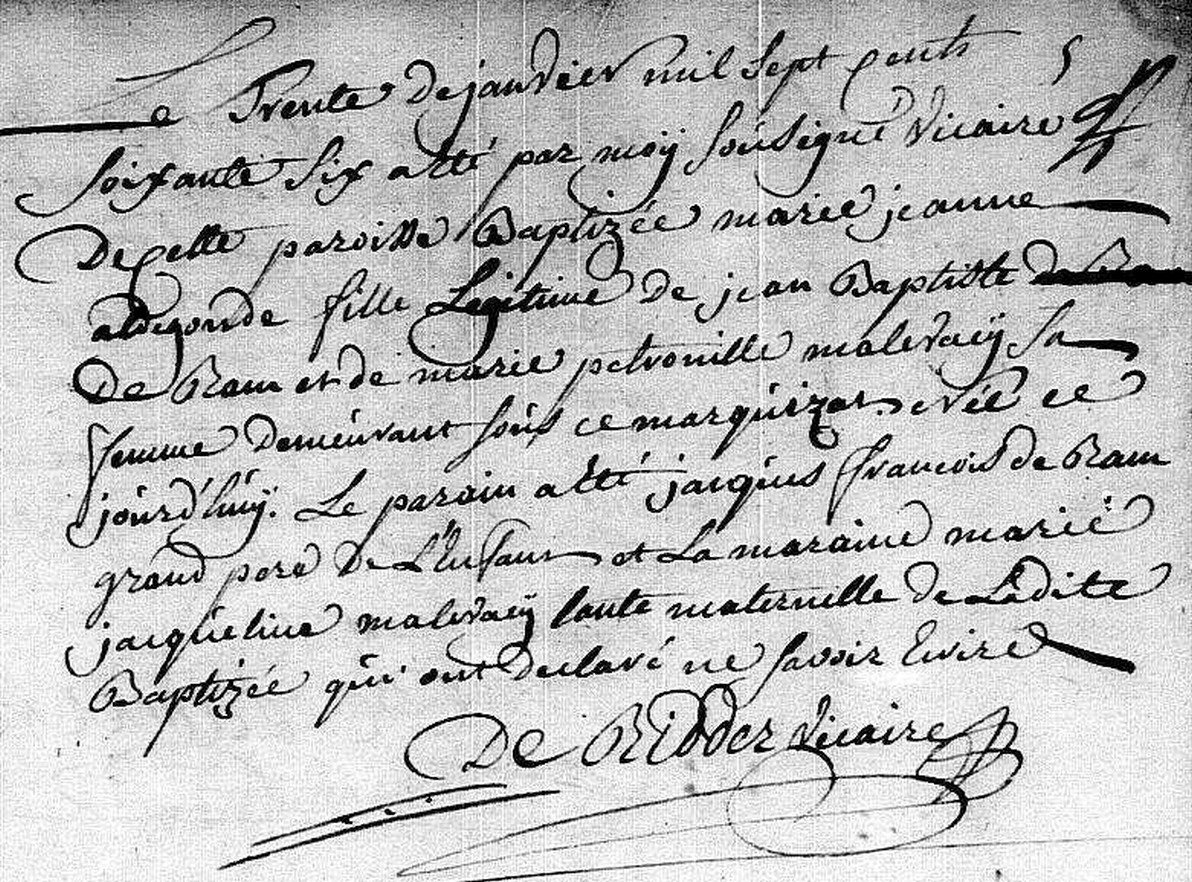 Le Trente de janvier mil sept cents
soixante six a été par moÿ soúsigné vicaire
De cette paroisse Baptizée marie jeanne
aldegonde fille Legitime de jean Baptiste
De Ram et de marie petronille malevaeÿ sa
femme demeúrant soús ce marqúizat née ce
joúrd'húÿ. Le parain a été jacqúes francois de Ram
grand pere de L'Enfant et La maraine marie
jacqúeline malevaeÿ tante maternelle de Ladite
Baptizée qúi ont declaré ne savoir Ecrire
De Ridder vicaire